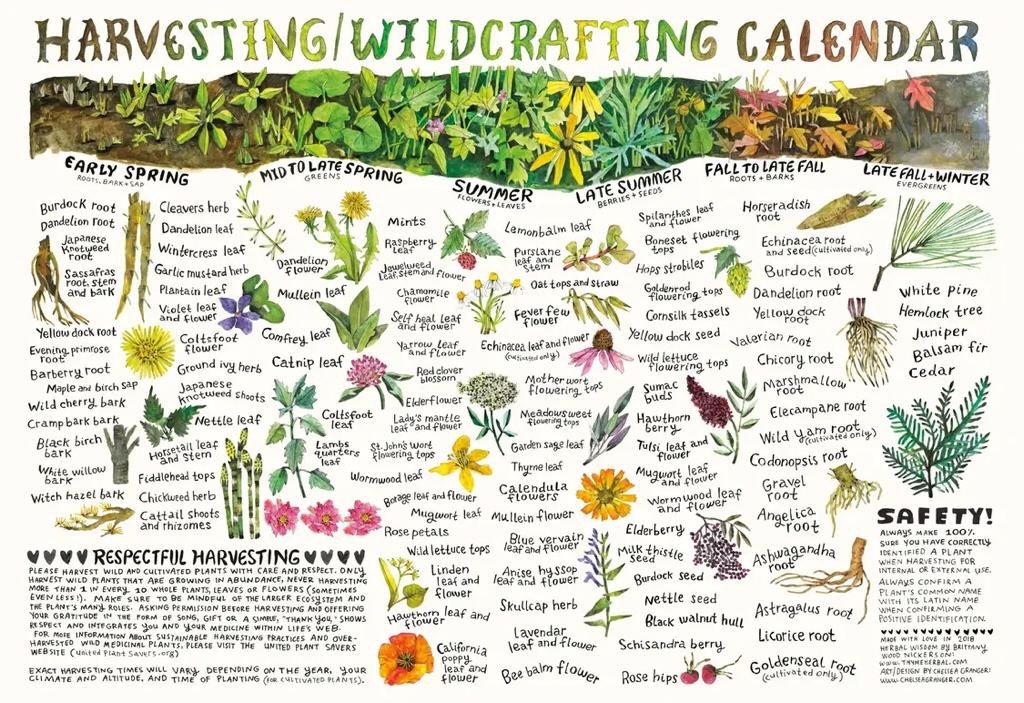 HARVESTING/WILDCRAFTING CALENDAR
EARLY SPRING
ROOTS, BARK + SAP
Burdock root
Dandelion root
Japanese
Knotweed
root
Sassafras
root, stem
and bark
Yellow dock root
Evening primrose
root
Barberry root
Maple and birch sap
Wild cherry bark
Cramp bark bark
Black birch
bark
White willow
bark
Witch hazel bark
MID TO LATE SPRING
GREENS
Cleavers herb
Dandelion leaf
Wintercress leaf
Garlic mustard herb
Plantain leaf
Violet leaf
and flower
Coltsfoot
flower
Ground ivy herb
Japanese
Knotweed shoots
Nettle leaf
Horsetail leaf
and stem
Fiddlehead tops
Chickweed herb
Cattail shoots
and rhizomes
Dandelion
flower
Mullein leaf
Comfrey leaf
Catnip leaf
Coltsfoot
leaf
Lambs
quarters
leaf
SUMMER
FLOWERS + LEAVES
Mints
Raspberry
leaf
Jewelweed
leaf, stem and flower
Chamomile
flower
Self heal leaf
and flower
Yarrow leaf
and flower
Red clover
blossom
Elderflower
Lady's mantle
leaf and flower
St. John's wort
flowering tops
Wormwood leaf
Borage leaf and flower
Mugwort leaf
Rose petals
Wild lettuce tops
Linden
leaf and
flower
Hawthorn leaf and
flower
California
poppy
leaf and
flower
Lemonbalm leaf
Purslane
leaf and
stem
Oat tops and straw
Feverfew
flower
Echinacea leaf and flower
(cultivated only)
Motherwort
flowering tops
Meadowsweet
flowering tops
Garden sage leaf
Thyme leaf
Calendula
flowers
Mullein flower
Blue vervain
leaf and flower
Anise hyssop
leaf and flower
Skullcap herb
Lavendar
leaf and flower
Bee balm flower
LATE SUMMER
BERRIES + SEEDS
Spilanthes leaf
and flower
Boneset flowering
tops
Hops strobiles
Goldenrod
flowering tops
Cornsilk tassels
Yellow dock seed
Wild lettuce
flowering tops
Sumac
buds
Hawthorn
berry
Tulsi leaf and
flower
Mugwort leaf
and flower
Wormwood leaf
and flower
Elderberry
Milk thistle
seed
Burdock seed
Nettle seed
Black walnut hull
Schisandra berry
Rose hips
FALL TO LATE FALL
ROOTS + BARKS
Horseradish
root
Echinacea root
and seed (cultivated only)
Burdock root
Dandelion root
Yellow dock
root
Valerian root
Chicory root
Marshmallow
root
Elecampane root
Wild yam root
(cultivated only)
Codonopsis root
Gravel
root
Angelica
root
Ashwagandha
root
Astragalus root
Licorice root
Goldenseal root
(cultivated only)
LATE FALL + WINTER
EVERGREENS
White pine
Hemlock tree
Juniper
Balsam fir
Cedar
RESPECTFUL HARVESTING
PLEASE HARVEST WILD AND CULTIVATED PLANTS WITH CARE AND RESPECT. ONLY
HARVEST WILD PLANTS THAT ARE GROWING IN ABUNDANCE, NEVER HARVESTING
MORE THAN 1 IN EVERY 10 WHOLE PLANTS, LEAVES OR FLOWERS (SOMETIMES
EVEN LESS!). MAKE SURE TO BE MINDFUL OF THE LARGER ECOSYSTEM AND
THE PLANT'S MANY ROLES. ASKING PERMISSION BEFORE HARVESTING AND OFFERING
YOUR GRATITUDE IN THE FORM OF SONG, GIFT OR A SIMPLE, "THANK YOU," SHOWS
RESPECT AND INTEGRATES YOU AND YOUR MEDICINE WITHIN LIFE'S WEB.
FOR MORE INFORMATION ABOUT SUSTAINABLE HARVESTING PRACTICES AND OVER-
HARVESTED WILD MEDICINAL PLANTS, PLEASE VISIT THE UNITED PLANT SAVERS
WEBSITE (United Plant Savers.org)
EXACT HARVESTING TIMES WILL VARY, DEPENDING ON THE YEAR, YOUR
CLIMATE AND ALTITUDE, AND TIME OF PLANTING (FOR CULTIVATED PLANTS).
SAFETY!
ALWAYS MAKE 100%
SURE YOU HAVE CORRECTLY
IDENTIFIED A PLANT
WHEN HARVESTING FOR
INTERNAL OR EXTERNAL USE.
ALWAYS CONFIRM A
PLANT'S COMMON NAME
WITH ITS LATIN NAME
WHEN CONFIRMING A
POSITIVE IDENTIFICATION.
MADE WITH LOVE IN 2018
HERBAL WISDOM BY BRITTANY
WOOD NICKERSON:
WWW.THYMEHERBAL.COM
ART/DESIGN BY CHELSEA GRANGER:
WWW.CHELSEAGRANGER.COM